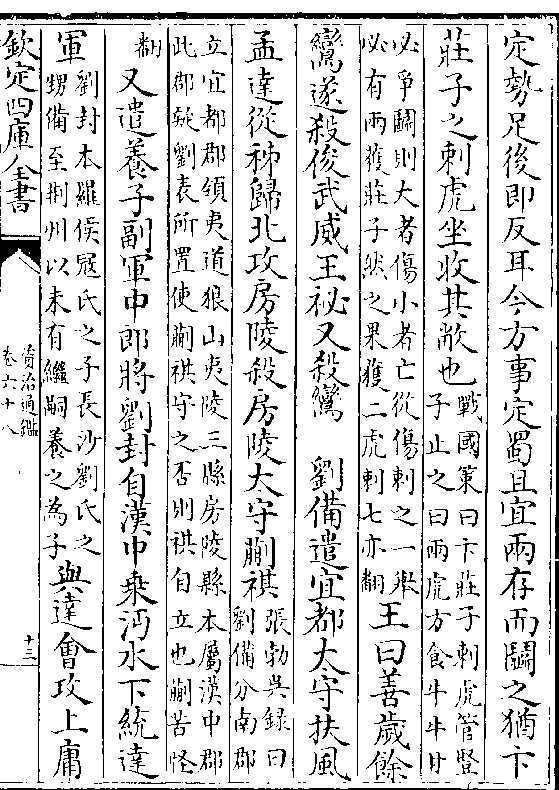 定勢足後即反耳今方事定蜀且宜兩存而鬭之猶卞
莊子之刺虎坐收其敝也戰國策曰卞莊子刺虎管豎
子止之曰兩虎方食牛牛甘
必争鬭則大者傷小者亡從傷刺之一舉
必有兩獲莊子然之果獲二虎刺七亦翻王曰善歲餘
鸞遂殺俊武威王祕又殺鸞 劉備遣宜都太守扶風
孟達從秭歸北攻房陵殺房陵太守蒯祺張勃吳録曰
劉備分南郡
立宜都郡領夷道狼山夷陵三縣房陵縣本屬漢中郡
此郡疑劉表所置使蒯祺守之否則祺自立也蒯苦怪
翻又遣養子副軍中郎將劉封自漢中乘沔水下統達
軍劉封本羅侯冦氏之子長沙劉氏之
甥備至荆州以未有繼嗣養之為子與達會攻上庸
欽定四庫全書
資治通鑑
卷六十八
十三